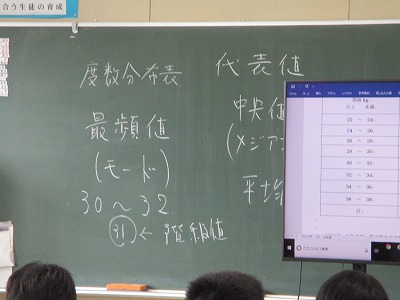 合う生徒の育成
度数分布表
最頻値
(モード)
30～32
31 ← 階級値
代表値
中央値
(メジア
平均
階級 kg
以上 未満
22 ～ 24
24 ～ 26
26 ～ 28
28 ～ 30
30 ～ 32
32 ～ 34
34 ～ 36
36 ～ 38
計